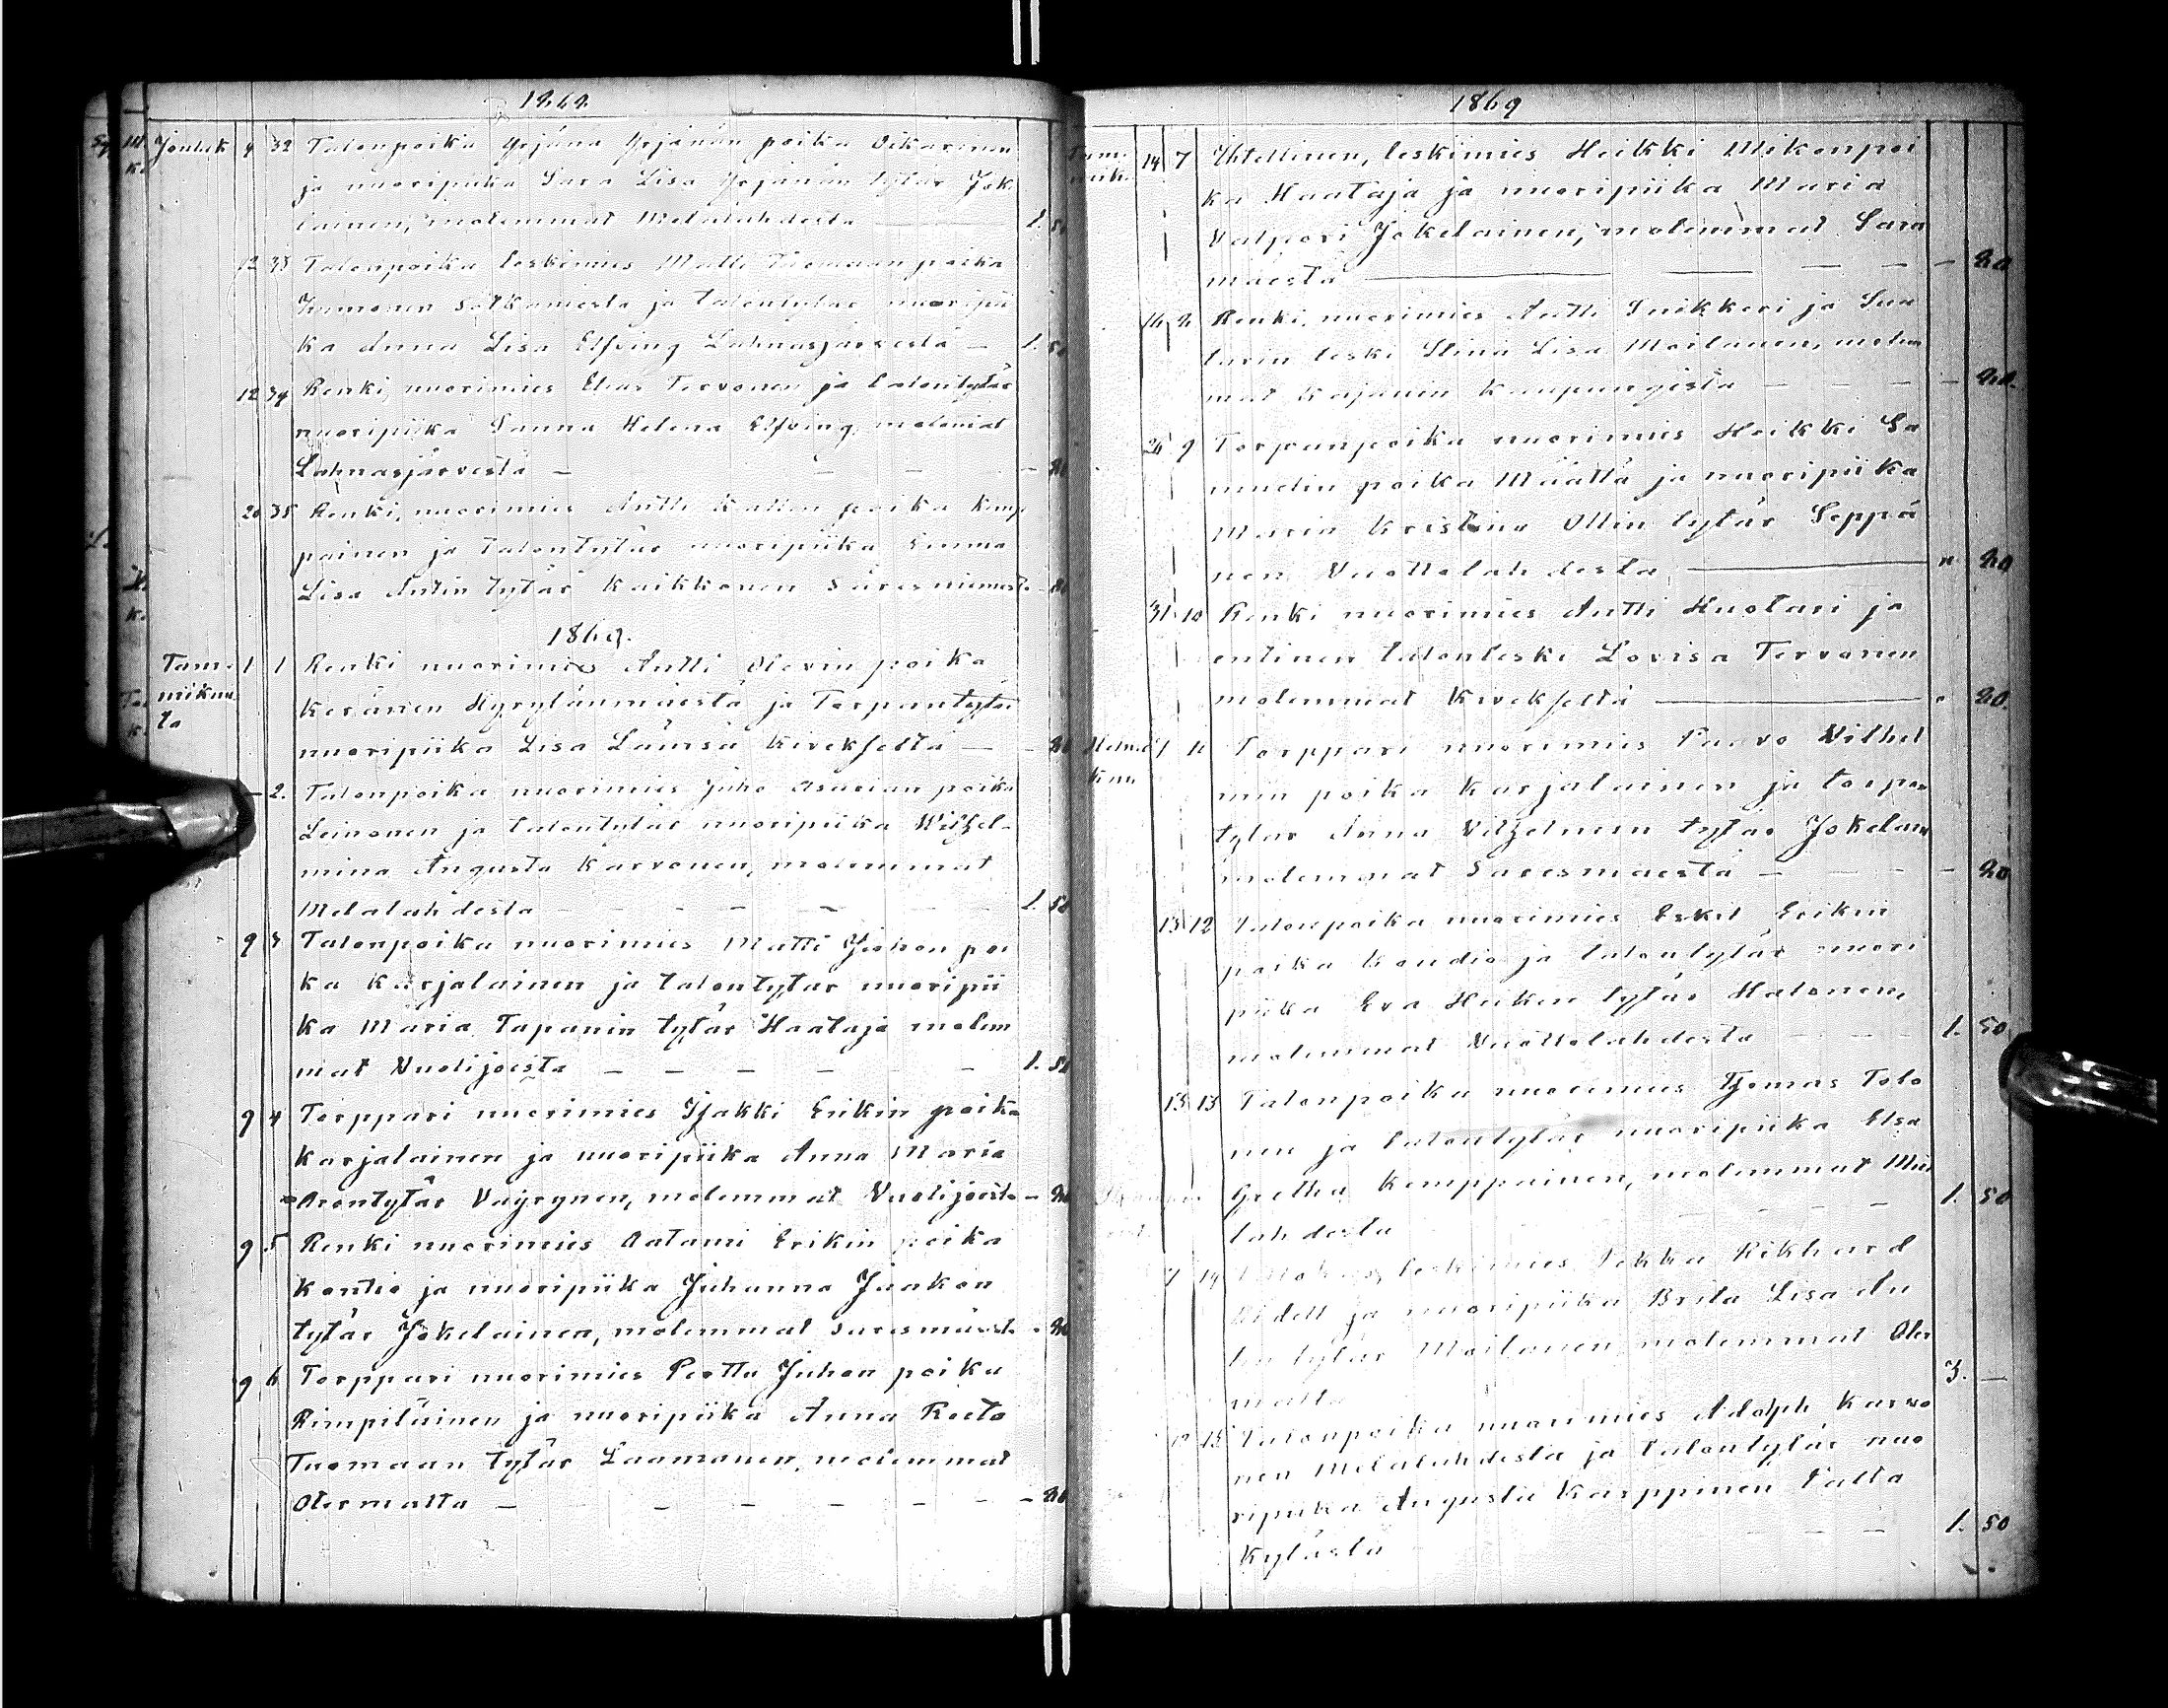 1868.
Jouluk 9 32 Talonpoika Yrjänä Yrjänän poika Oikarinen
ja nuoripiika Sara Lisa Yrjänän tytär Joke
lainen, molemmat Melalahdesta 1. 50
12 33 Talonpoika leskimies Matti Tuomaan poika
Immonen Sotkamosta ja talontytär nuoripii
ka Anna Lisa Elfving Lahnasjärvestä — 1. 50
12 34 Renki, nuorimies Elias Tervonen ja talontytär
nuoripiika Sanna Helena Elfving molemat
Lahnasjärvestä — — — — 80
20 35 Renki, nuorimies Antti Kallen poika Kemp
painen ja talontytär nuoripiika Emma
Lisa Antin tytär Kaikkonen Säresniemest. 80
1869.
Tam-
mikuu
ta
1 1 Renki nuorimies Antti Olovin poika
Keränen Hyrylänmäestä ja Torpantytär
nuoripiika Lisa Läämsä Kivekseltä — — 80
— 2. Talonpoika nuorimies Juho poika
Leinonen ja talontytär nuoripiika Wilhel-
mina Augusta Karvonen, molemmat
Melalahdesta — — — — 1. 50
9 3 Talonpoika nuorimies Matti Juhon poi
ka Karjalainen ja talontytär nuoripii
ka Maria Tapanin tytär Haataja molem
mat Vuolijoesta — — — — — 1. 50
9 4 Torppari nuorimies Isakki Erikin poika
Karjalainen ja nuoripiika Anna Maria
Arontytär Väyrynen, molemmat Vuolijoesta — 80
9 5 Renki nuorimies Aatami Erikin poika
Kontio ja nuoripiika Juhanna Jaakon
tytär Jokelainen, molemmat Saresmäest. 80
9 6 Torppari nuorimies Peottu Juhon poika
Rimpiläinen ja nuoripiika Anna Reeta
Tuomaan tytär Laamanen, molemmat
Otermalta — — — — — — — 80
1869
Tam-
mik.
14 7 Ihtellinen, leskimies Heikki Mikonpoi
ka Haataja ja nuoripiika Maria
Valpori Jokelainen, molemmat Saras
mäestä — — — — — 80
16 8 Renki, nuorimies Antti Snikkeri ja
leski Stina Lisa Moilanen, molem
mat Kajanin Kaupungista — — — — 80.
26 9 Torpanpoika nuorimies Heikki Sa
muelin poika Määttä ja nuoripiika
Maria Kristina Ollin tytär Seppä
nen Vuottolahdesta — " 80
31 10 Renki nuorimies Antti Huotari ja
entinen talonleski Lovisa Tervonen
molemmat Kivekseltä — " 80.
Helmi
kuu
11 Torppari nuorimies Paavo Vilhel
min poika Karjalainen ja torpan
tytär Anna Vilhelmin tytär Jokelain
molemmat Saresmäestä — — — 80
13 12 Talonpoika nuorimies Eskil Erikin
poika Kondio ja talontytär nuori
piika Eva Heikin tytär Halonen,
molemmat Vuottolahdesta 1. 50
13 13 Talonpoika nuorimies Tomas Tolo
nen ja talontytär nuoripiika Elsa
Gretha Kemppainen, molemmat Mie
lahdesta — — — 1. 50
7 14 leskimies Pekka Rikhard
ja nuoripiika Brita Lisa An
tin tytär Moilanen molemmat Oter
malta 3. —
12 15 Talonpoika nuorimies Adolph Karvo
nen Melalahdesta ja talontytär nuo
ripiika Augusta Karppinen Palta
kylästä — — — 1. 50